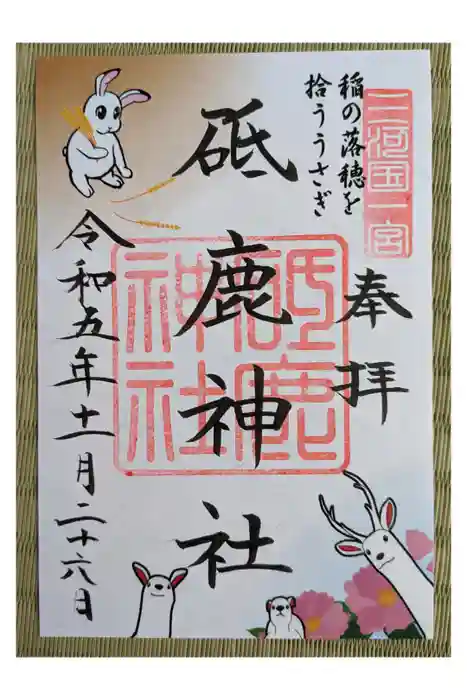 三河国一宮
奉拝
稲の落穂を
拾ううさぎ
砥鹿神社
砥鹿
神社
令和五年十一月二十六日